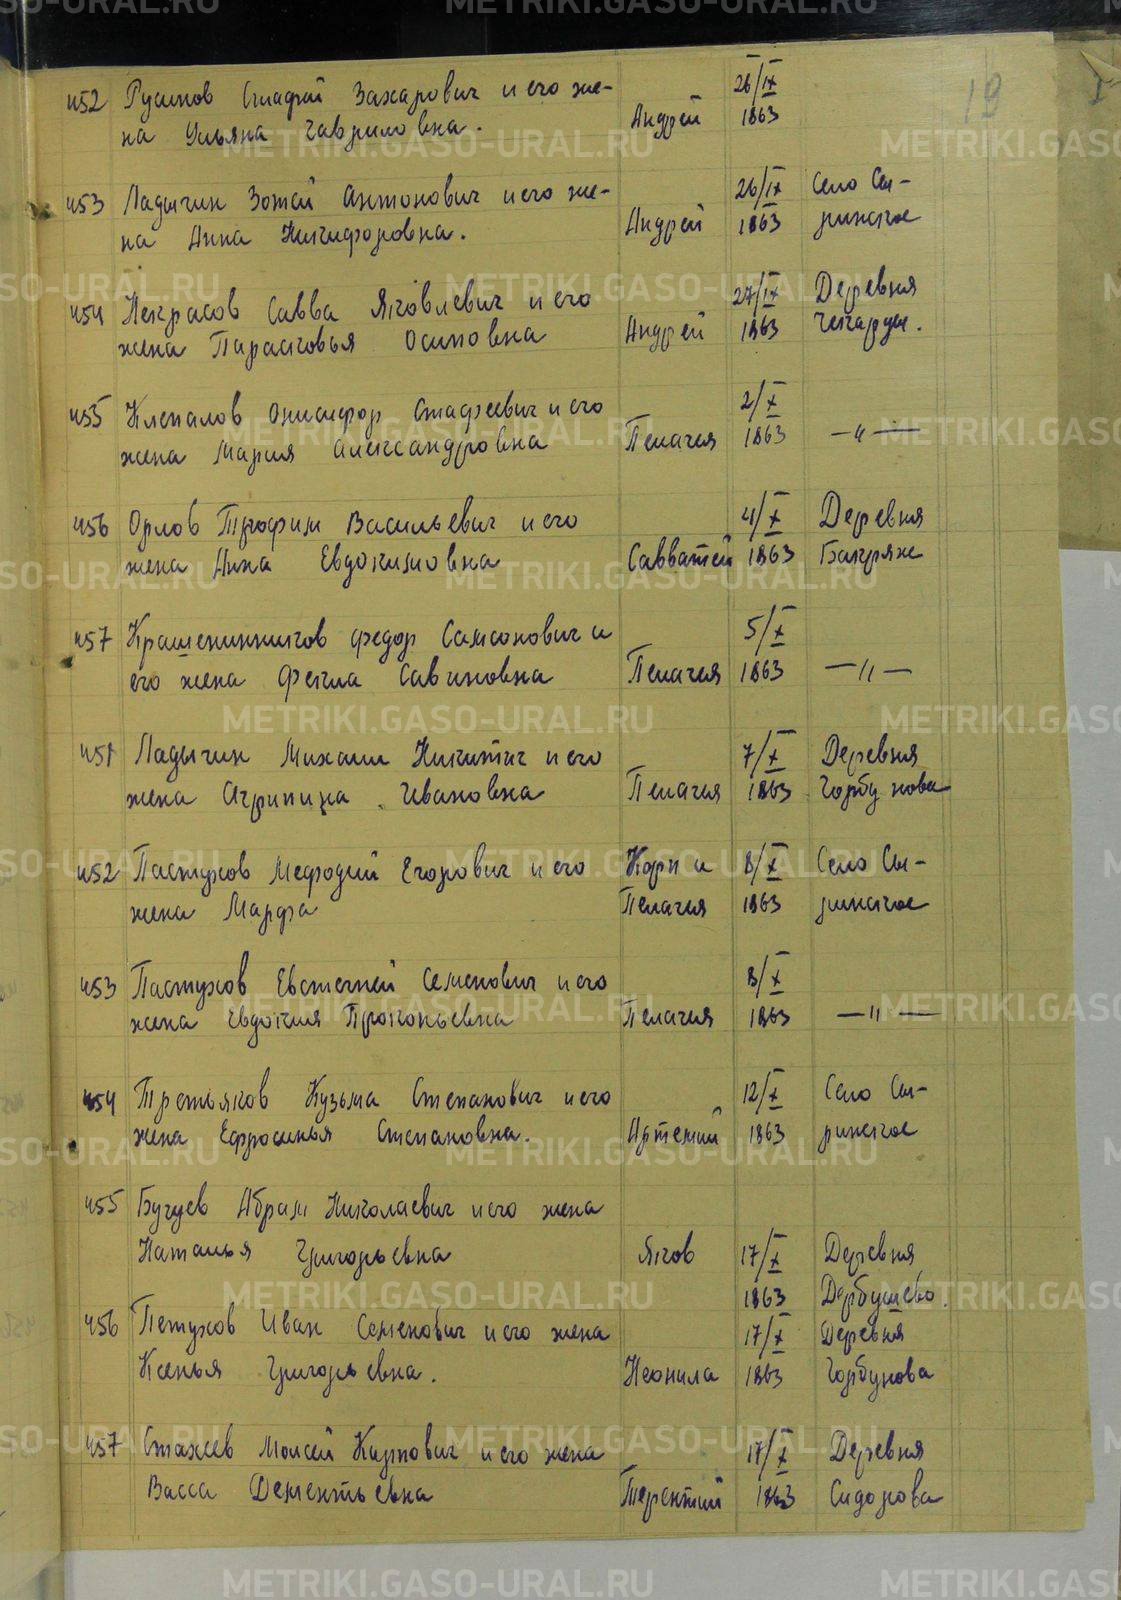 19
452 Русинов Епафрий Захарович и его же- 26/IX
на Ульяна Гавриловна. Андрей 1863
453 Ладыгин Зотей Антонович и его же- 26/IX Село Сы-
на Анна Никифоровна. Андрей 1863 ринское
454 Некрасов Савва Яковлевич и его 27/IX Деревня
жена Парасковья Осиповна Андрей 1863 Чекарды.
455 Клепалов Онисифор Стафеевич и его 2/X
жена Мария Александровна Пелагея 1863 —"—
456 Орлов Трофим Васильевич и его 4/X Деревня
жена Анна Евдокимовна Савватей 1863 Бакряж
457 Крашенинников Федор Самсонович и 5/X
его жена Фекла Савиновна Пелагея 1863 —"—
451 Ладыгин Михаил Никитич и его 7/X Деревня
жена Агрипина Ивановна Пелагея 1863 Горбунова
452 Пастухов Мефодий Егорович и его Карп и 8/X Село Сы-
жена Марфа Пелагея 1863 ринское
453 Пастухов Евстегней Семенович и его 8/X
жена Евдокия Прокопьевна Пелагея 1863 —"—
454 Третьяков Кузьма Степанович и его 12/X Село Сы-
жена Ефросинья Степановна. Артемий 1863 ринское
455 Бугуев Абрам Николаевич и его жена
Наталья Григорьевна Яков 17/X Деревня
1863 Дарбушево.
456 Петухов Иван Семенович и его жена 17/X Деревня
Ксенья Григорьевна. Неонила 1863 Горбунова
457 Стахеев Моисей Карпович и его жена 17/X Деревня
Васса Дементьевна Терентий 1863 Сидорова
METRIKI.GASO-URAL.RU